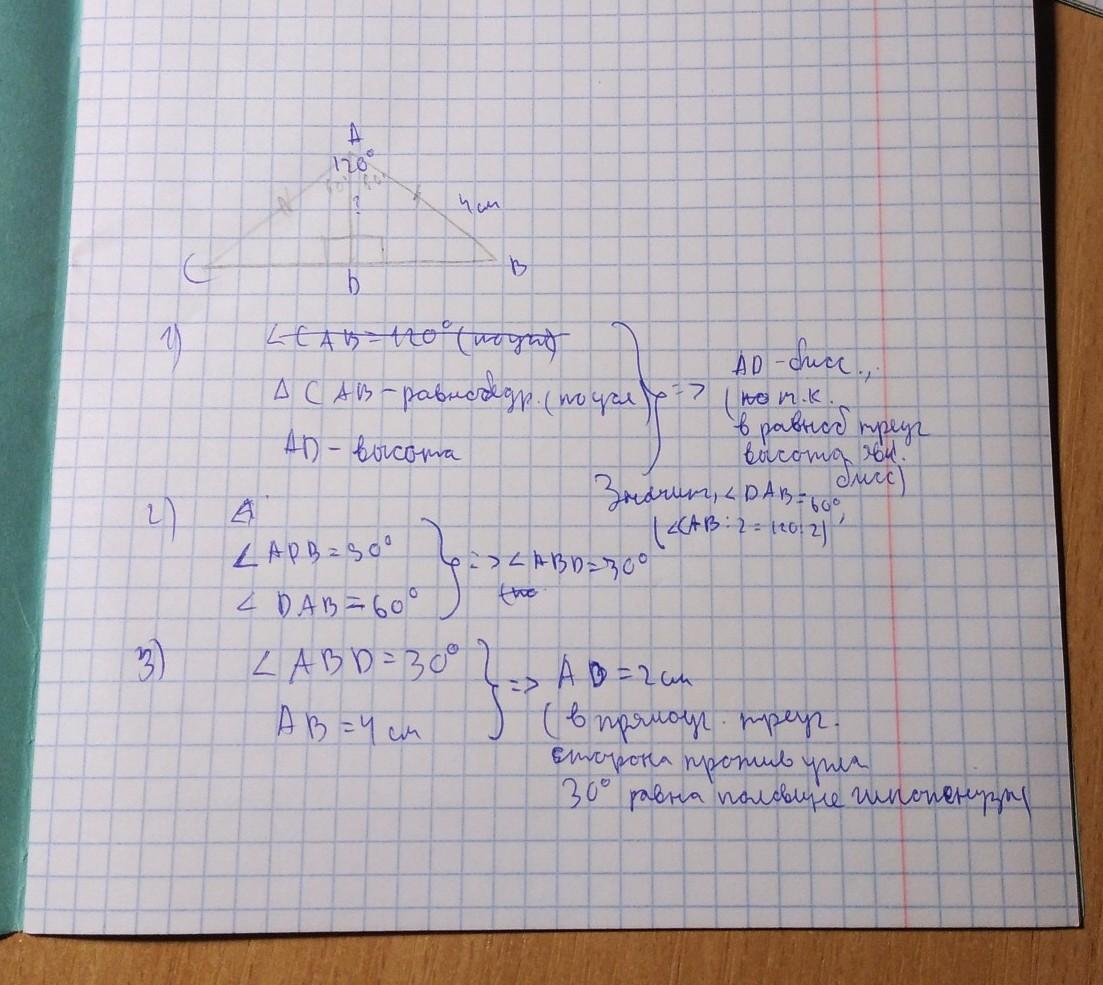 A
120°
60° 60°
?
4 см
C
D
B
1) ∠CAB=120° (по усл)
△CAB-равнобедр. (по усл)
AD-высота
=> AD-бисс.,
(по т.к.
в равноб треуг
высота явл.
бисс)
Значит, ∠DAB=60°,
(∠CAB:2=120:2)
2) ∠
∠ADB=90°
∠DAB=60°
=> ∠ABD=30°
(по
3) ∠ABD=30°
AB=4 см
=> AD=2 см
(в прямоуг. треуг.
сторона против угла
30° равна половине гипотенузы)